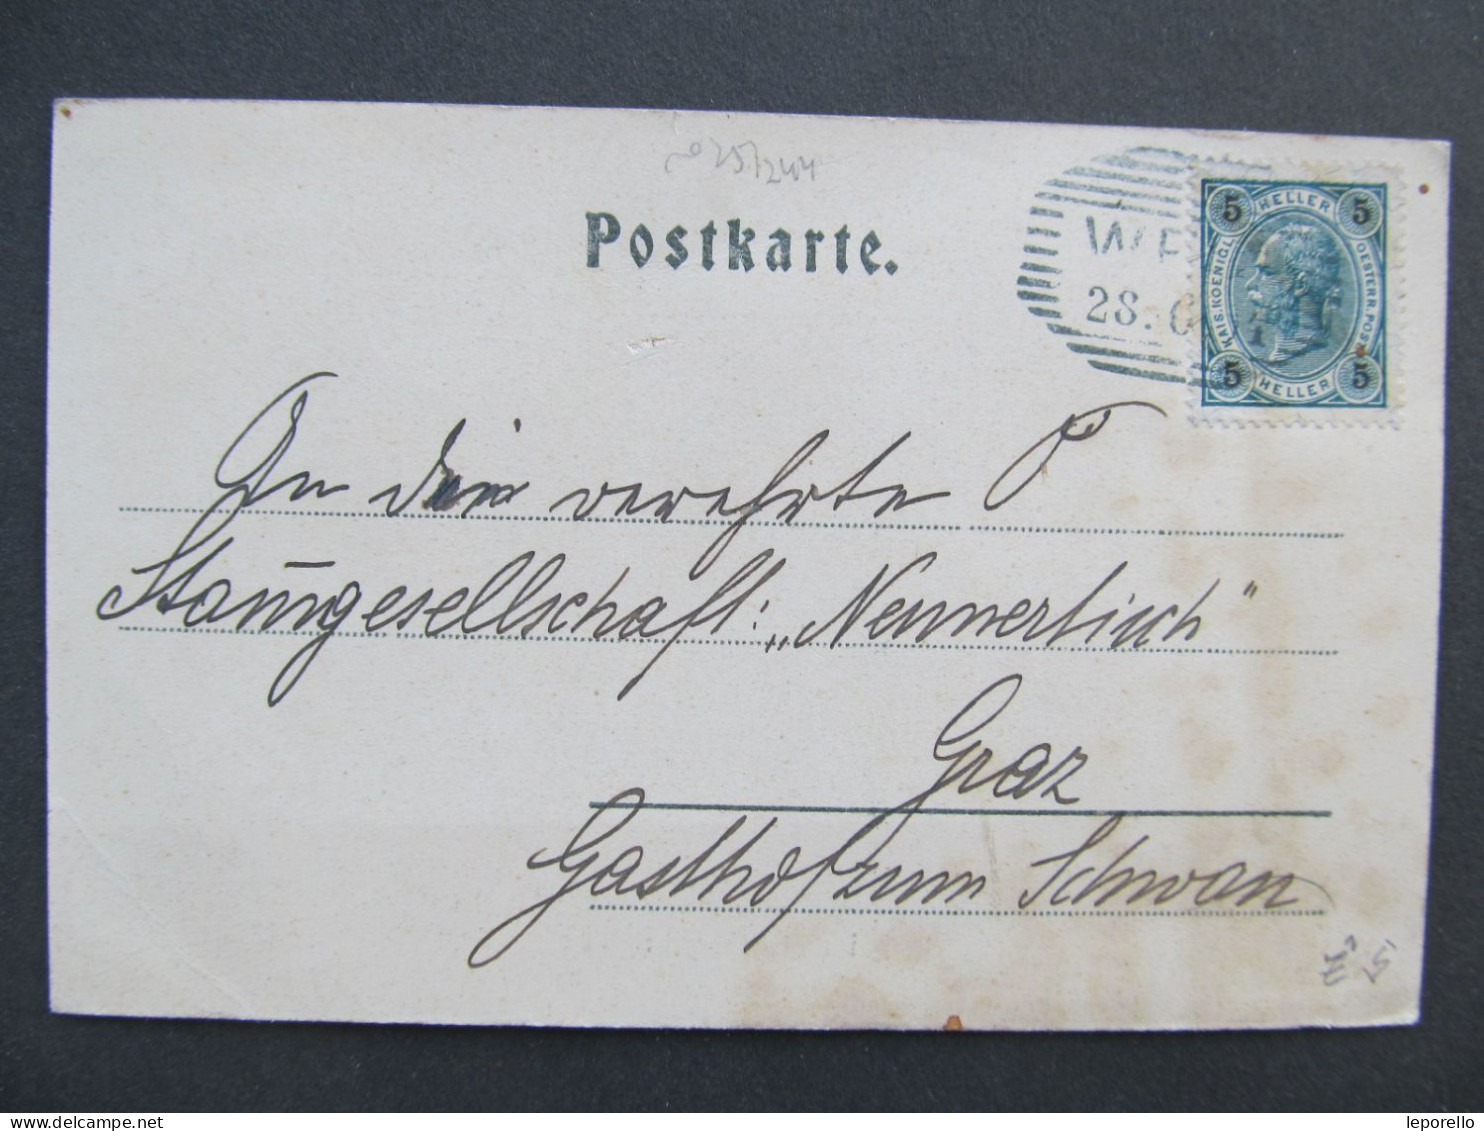 25/244
Postkarte.
5 HELLER 5
KAIS. KOENIGL. OESTERR. POST
5 HELLER 5
28.
An die verehrte
Stammgesellschaft: „Nennertisch"
Graz
Gasthof zum Schwan
leporello
www.delcampe.net